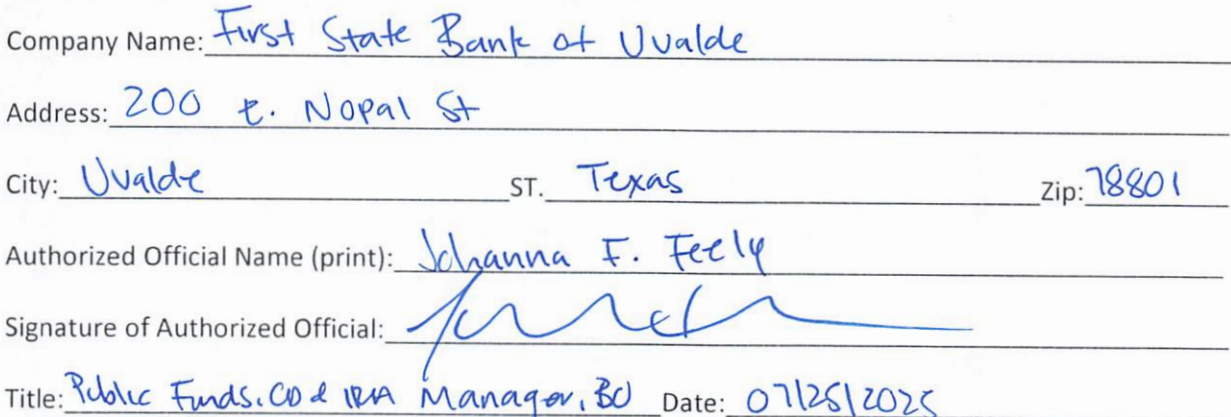 Company Name: First State Bank of Uvalde
Address: 200 E. Nopal St
City: Uvalde ST. Texas Zip: 78801
Authorized Official Name (print): Johanna F. Feely
Signature of Authorized Official:
Title: Public Funds, CD & IRA Manager, BO Date: 07/25/2025